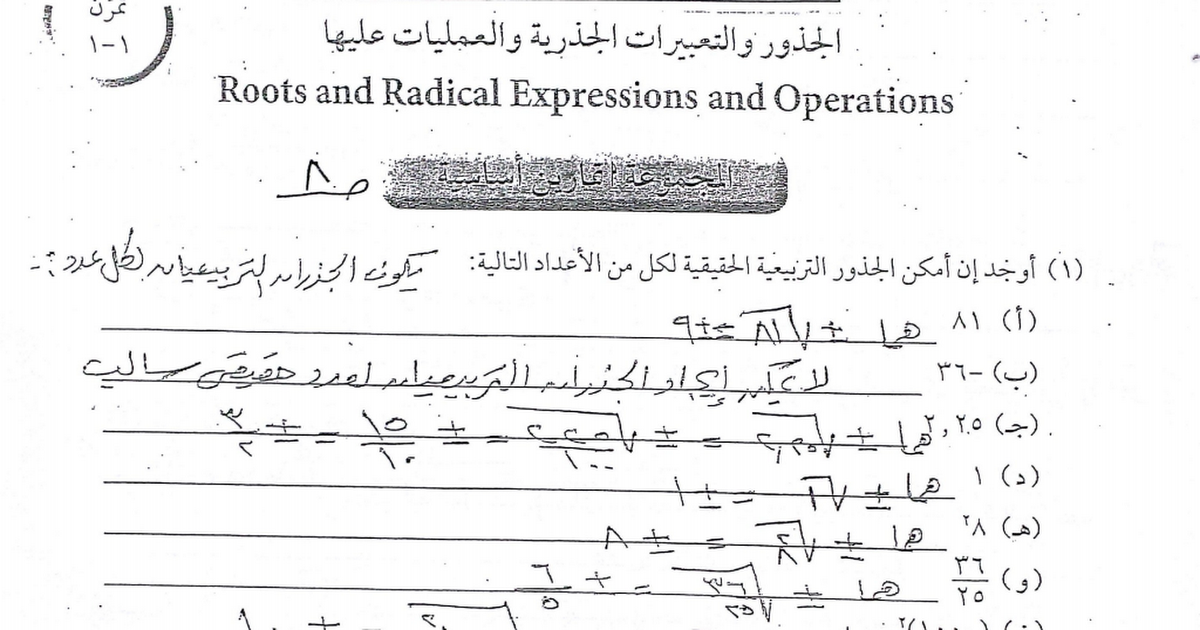 تمرّن
١-١
الجذور والتعبيرات الجذرية والعمليات عليها
Roots and Radical Expressions and Operations
المجموعة أ تمارين أساسية
ص ٨
(١) أوجد إن أمكن الجذور التربيعية الحقيقية لكل من الأعداد التالية: يكون الجذران التربيعيان لكل عدد :-
(أ) ٨١ هما ± √٨١ = ± ٩
(ب) -٣٦ لا يمكن إيجاد الجذران التربيعيان لعدد حقيقي سالب
(جـ) ٢,٢٥ هما ± √٢,٢٥ = ± √٢٢٥/١٠٠ = ± ١٥/١٠ = ± ٣/٢
(د) ١ هما ± √١ = ± ١
(هـ) ٨² هما ± √٨² = ± ٨
(و) ٣٦/٢٥ هما ± √٣٦/٢٥ = ± ٦/٥